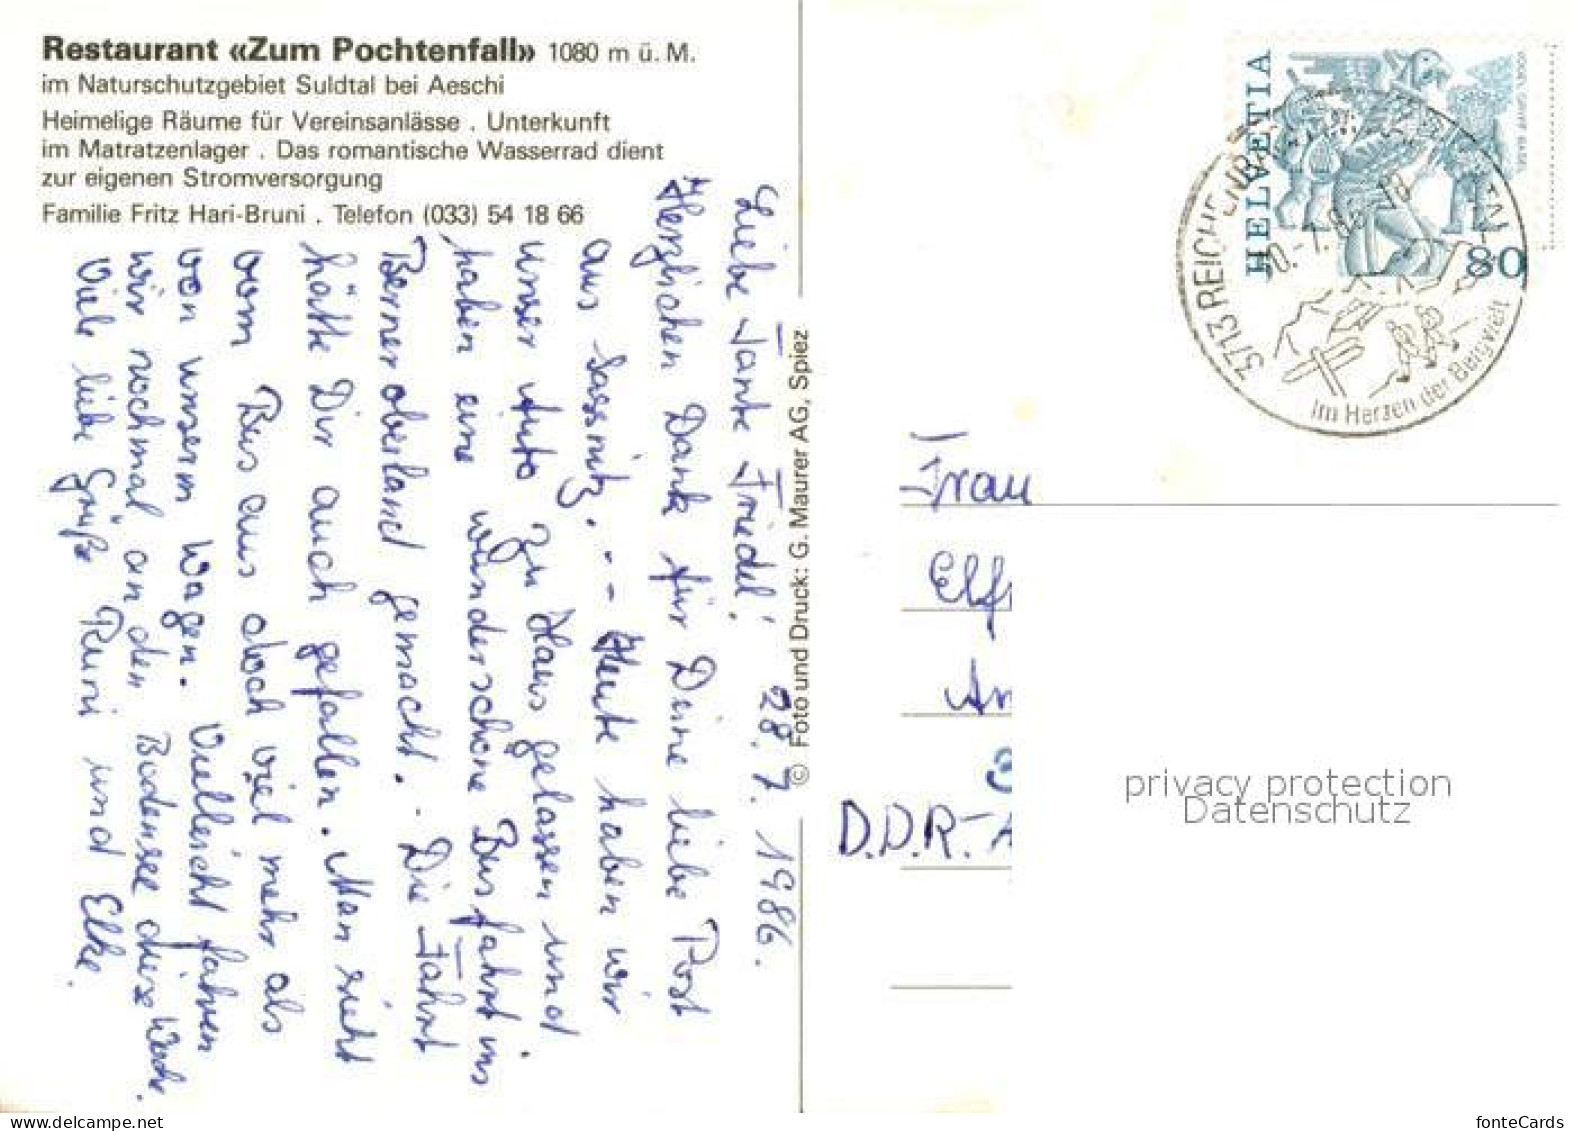 Restaurant «Zum Pochtenfall» 1080 m ü. M.
im Naturschutzgebiet Suldtal bei Aeschi
Heimelige Räume für Vereinsanlässe . Unterkunft
im Matratzenlager . Das romantische Wasserrad dient
zur eigenen Stromversorgung
Familie Fritz Hari-Bruni . Telefon (033) 54 18 66
Liebe Tante Friedel! 28. 7. 1986.
Herzlichen Dank für Deine liebe Post
aus Sassnitz. - - Heute haben wir
unser Auto zu Haus gelassen und
haben eine wunderschöne Busfahrt ins
Berner oberland gemacht. - Die Fahrt
hätte Dir auch gefallen. Man sieht
vom Bus aus doch viel mehr als
von unserm Wagen. Vielleicht fahren
wir nochmal an den Bodensee diese Woche.
Viele liebe Grüße Runi und Elke.
© Foto und Druck: G. Maurer AG, Spiez
HELVETIA
VOGEL GRYFF BASEL
80
3713 REICHENBACH
Im Herzen der Bergwelt
Frau
Elf
An
D.D.R.-A
privacy protection
Datenschutz
fonteCards